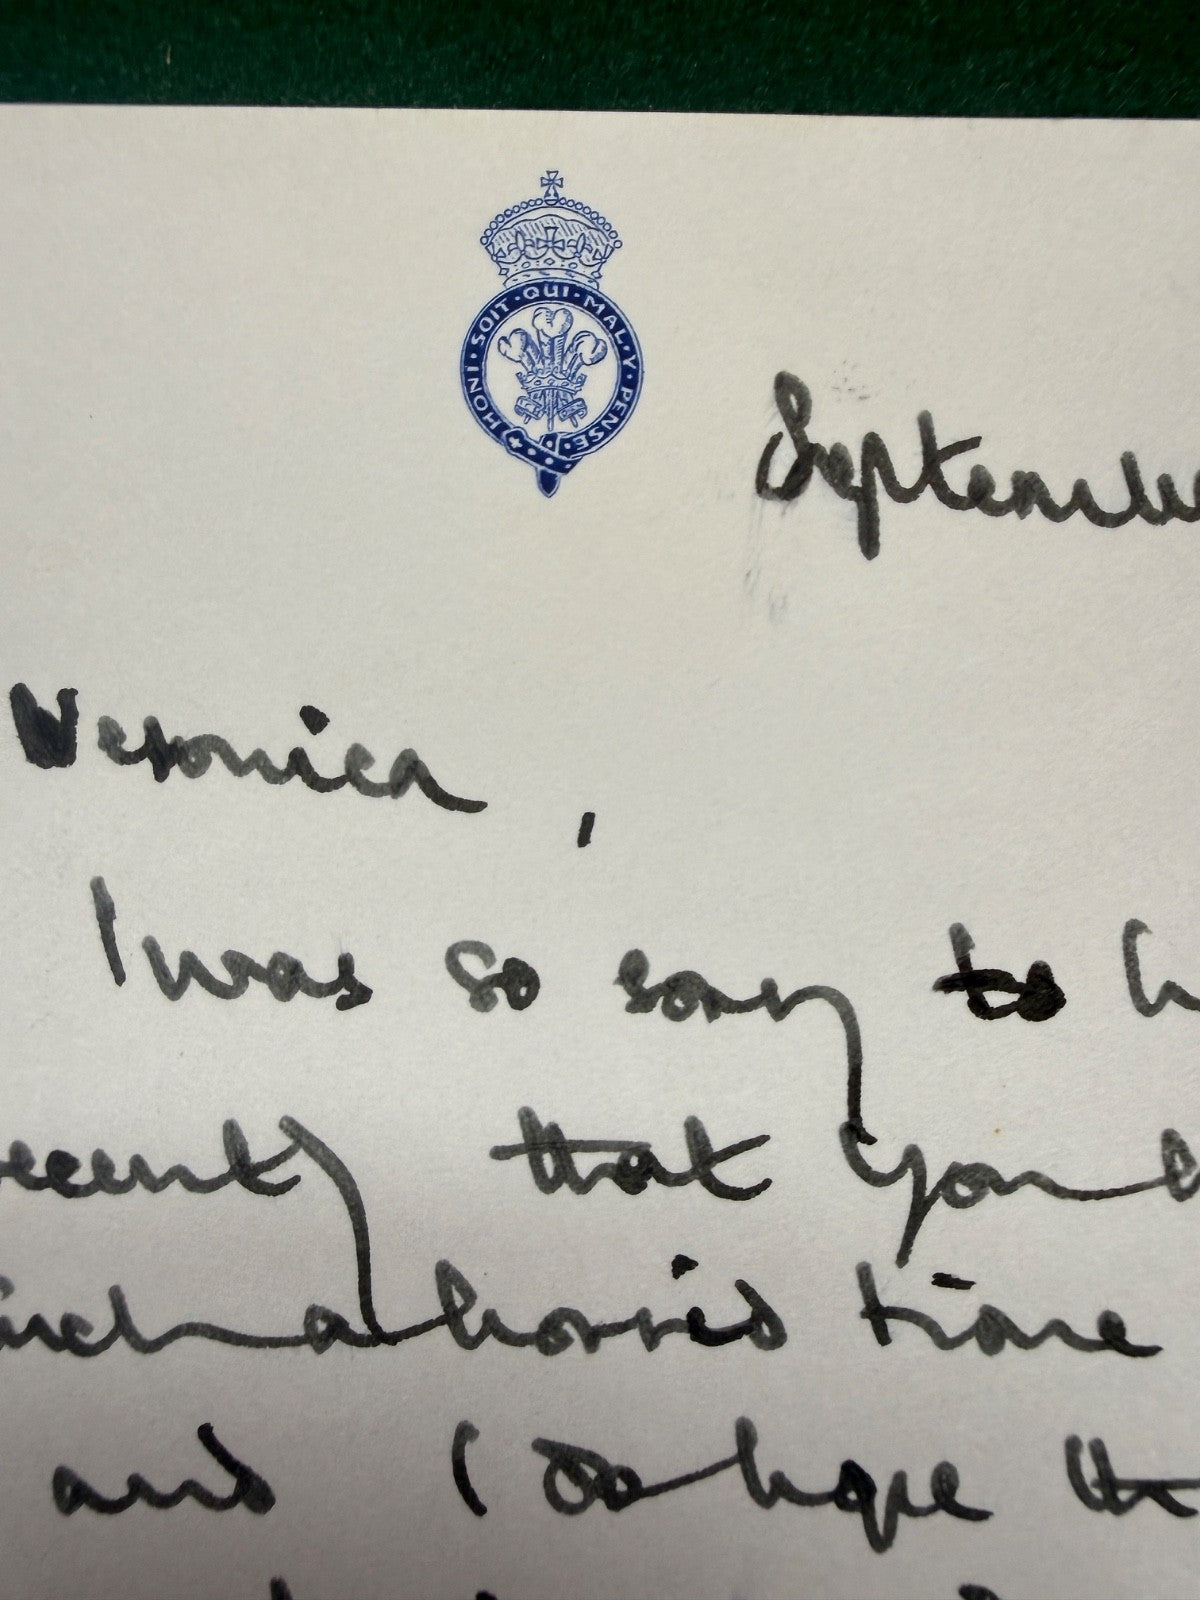 HONI · SOIT · QUI · MAL · Y · PENSE
Septembe
Veronica,
I was so sorry to h
recently that you
such a horrid time
and I do hope th